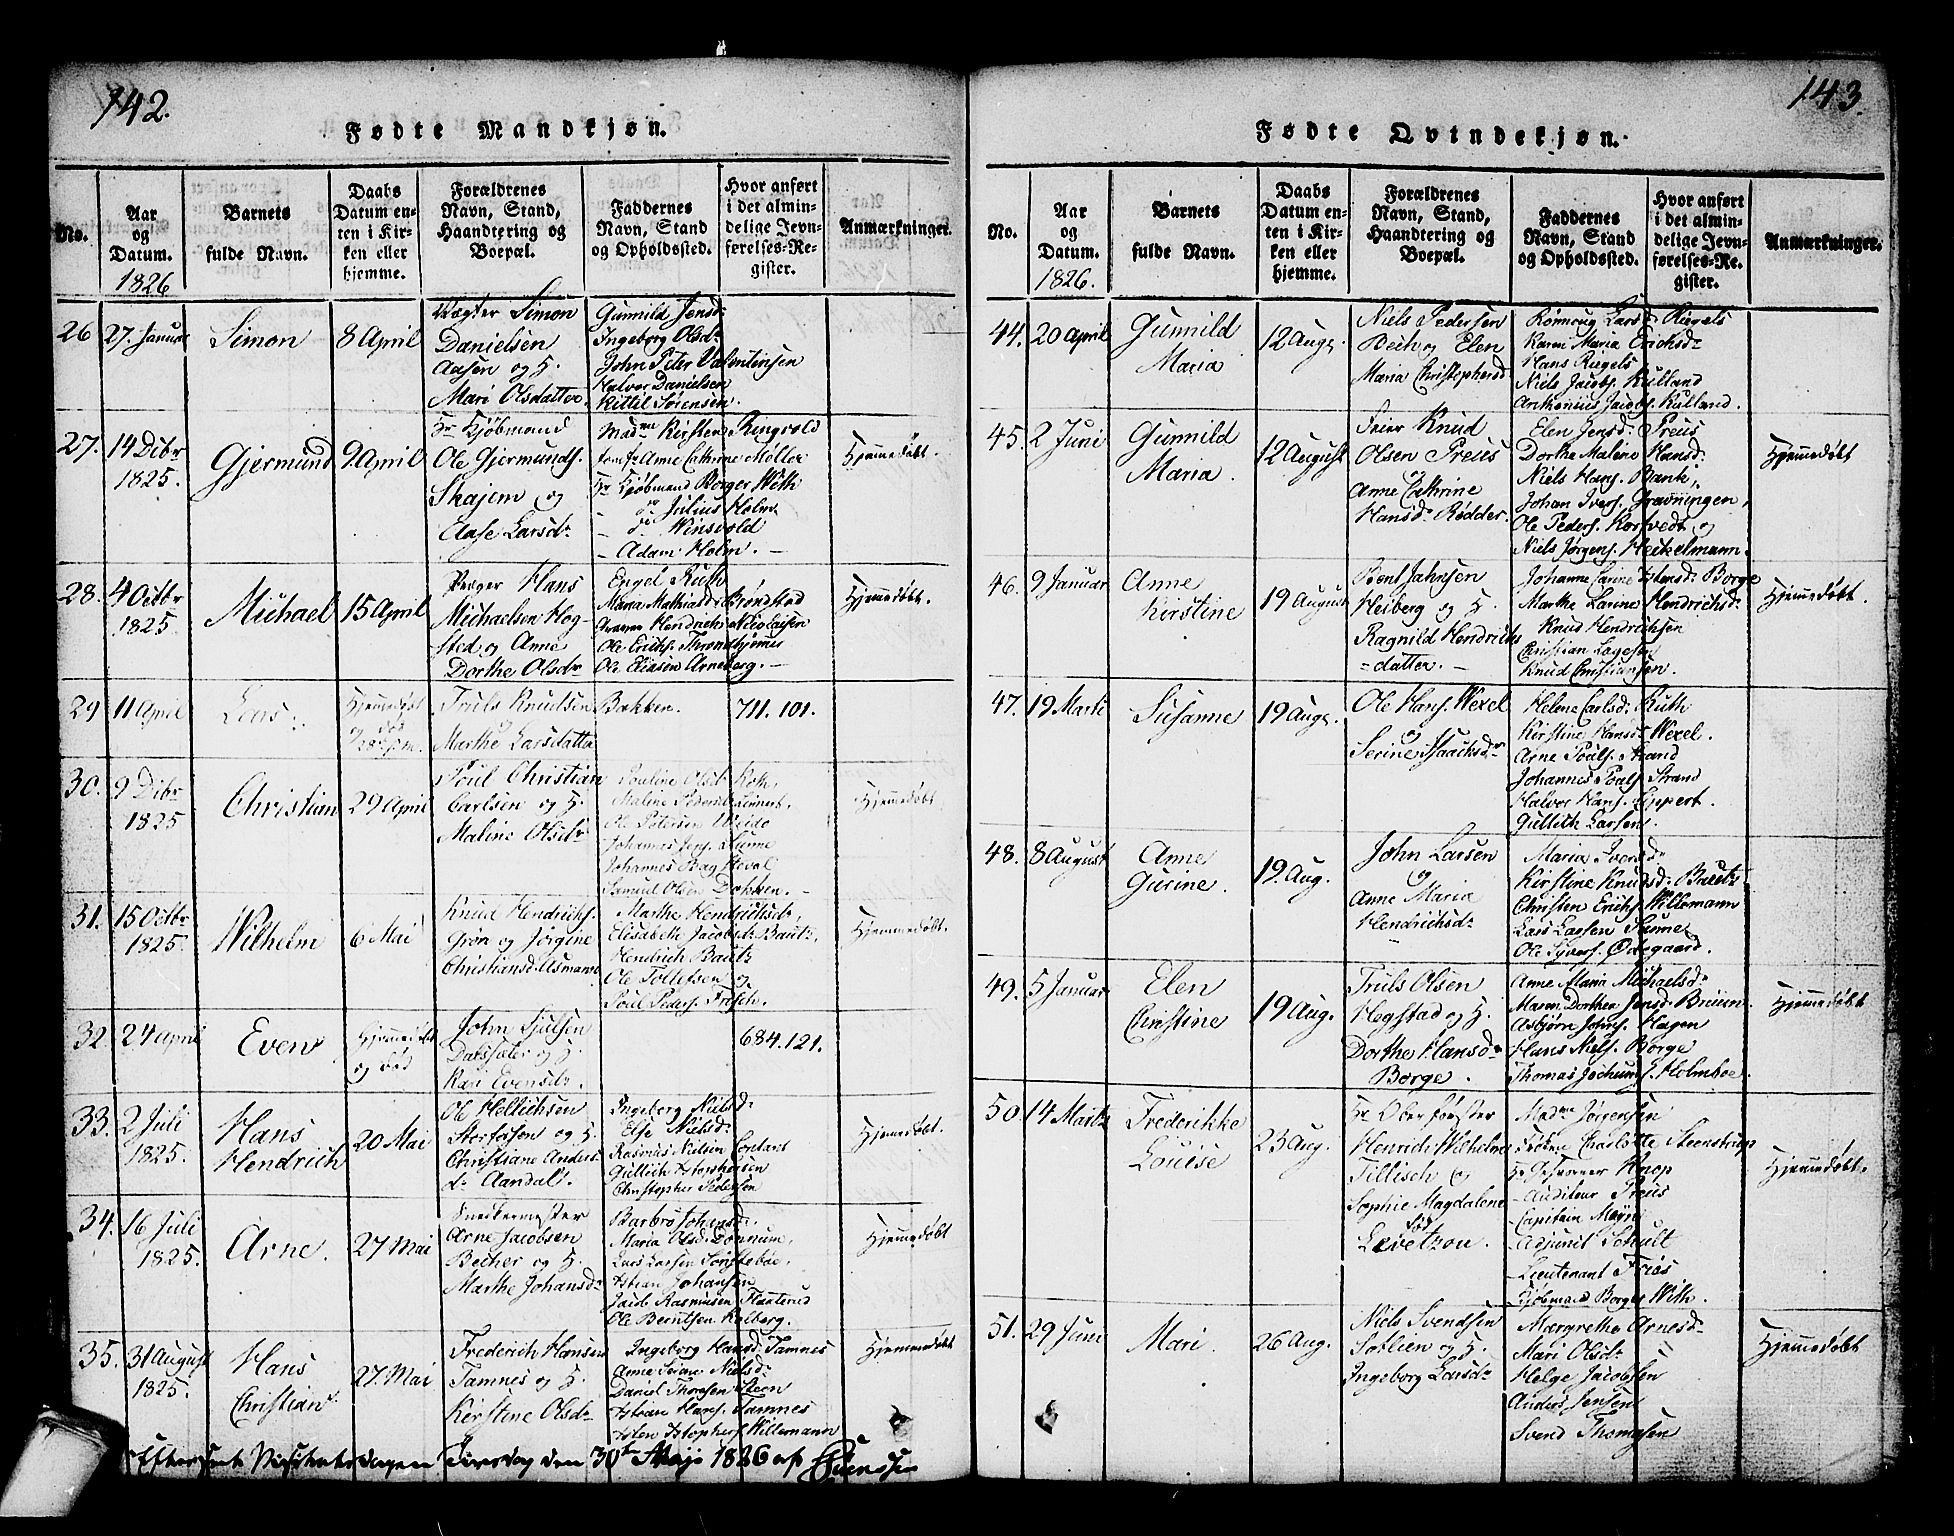 142.
Fødte Mandkjøn.
No.
Aar og Datum. 1826
Barnets fulde Navn.
Daabs Datum enten i Kirken eller hjemme.
Forældrenes Navn, Stand, Haandtering og Boepæl.
Faddernes Navn, Stand og Opholdssted.
Hvor anført i det almindelige Jevnførelses-Register.
Anmærkninger.
26 27. Januar Simon 8 April
Simon
Danielsen
Aasen og H.
Mari Olsdatter.
Gunnild Jensd:
Ingeborg Olsd:
John Peter Valentinsen
Halvor Danielsen
Kittil Sørensen.
27. 14 Dcbr 1825. Gjermund 9 April
Hr Kjøbmand
Ole Gjermunds.
Skajem og
Aase Larsdr
Madme Kirsten Ringvold
Jomfr Anne Cathrine Møller
Hr Kjøbmand Borger With
Julius Holm
Winsvold
- Adam Holm. -
Hjemmedøbt.
28. 4 Octbr 1825. Michael 15 April
Hans
Michaelsen Hogsted og Anne
Dorthe Olsdr
Engel Ruth
Maria Mathiasd: Brøndsted
Hendrich Nicolaisen
Ole Erichs. Throndhjemmer
Ole Eliasen Arneberg. -
Hjemmedøbt.
29 11 April Lars. Hjemmedøbt og død
Truls Knudsen Bakken.
og
Marthe Larsdatter
711. 101.
30. 9 Dcbr 1825 Christian 29 April
Poul Christian
Carlsen og H.
Maline Olsdr
Pauline Olsd: Roth,
Maline Pedersd: Linnert,
Ole Petersen Weide
Johannes Jørg. Lunne
Johannes Hoval
Samuel Olsen Dokken. -
Hjemmedøbt
31. 15 Octbr 1825. Wilhelm 6 Mai
Knud Hendrichs.
Grøn og Jørgine
Christiansd. Asmann
Marthe Hendrichsdr,
Elisabeth Jacobsdr Bautz,
Hendrich Bautz
Ole Tollefsen og
Poul Peders. Frisch.
Hjemmedøbt.
32 24 april Even Hjemmedøbt og død
John Juulsen
og H.
Kari Evensdr.
684. 121.
33. 2 Juli 1825. Hans Hendrich 20 Mai
Ole Hellichsen
Storfossen og H.
Christiane Andersdr Aandalt.
Ingeborg Nielsd:
Else Nielsd:
Rasmus Nielsen
Gullich
Christopher Pedersen
Hjemmedøbt.
34. 16 Juli 1825. Arne. 27 Mai
Snedkermester
Arne Jacobsen
Becher og H.
Marthe Johansdr
Barbro Johansd:
Maria Olsd: Donnum,
Lars Larsen Sonstebøe,
Johansen
Jacob Rasmussen Flaaterud
Ole Berntsen Kalberg.
Hjemmedøbt
35. 31 August 1825. Hans Christian. 27. Mai
Frederich Hansen
Tamnes og H.
Kirstine Olsdr
Ingeborg Hansd: Tamnes
Anne Serine Nielsd:
Daniel Thoresen Steen
Hans. Tamnes
Willemann
Hjemmedøbt
Tirsdag den 30te Maji 1826 af
143.
Fødte Qvindekjøn.
No.
Aar og Datum. 1826.
Barnets fulde Navn.
Daabs Datum enten i Kirken eller hjemme.
Forældrenes Navn, Stand, Haandtering og Boepæl.
Faddernes Navn, Stand og Opholdssted.
Hvor anført i det almindelige Jevnførelses-Register.
Anmærkninger.
44. 20 April Gunnild Maria 12 Aug.
Niels Pedersen
Bech og Elen
Maria Christophersd
Rønnoug Lars: Riegels
Karen Maria Erichsdr
Hans Riegels
Niels Jacobs. Rulland
Anthonius Jacobs. Rulland.
45. 2 Juni Gunnild Maria. 12 August
Feier Knud
Olsen Preus
og
Anne Cathrine
Hansdr Rødder.
Elen Jensd: Preus
Dorthe Malene Hansd:
Niels Hans. Bank,
Johan Ivers. Gravningen,
Ole Peders. Korsvedt og
Niels Jørgens. Heckelmann.
Hjemmedøbt
46. 9 Januar Anne Kirstine 19 August
Bent Jahnsen
Heiberg og H.
Ragnild Hendriks
=datter. -
Johanne Borge
Marthe Larine Hendrichsd:
Knud Hendrichsen
Christian Lagesen
Knud Christiansen.
Hjemmedøbt.
47. 19 Marti Susanne 19 Aug.
Ole Hans. Wexel
og
Serine Isaachsdr
Helene Carlsd: Ruth
Kirstine Hansdr Wexel.
Arne Poals. Strand
Johannes Poals. Strand
Halvor Hans. Eppert.
Gullith Larsen.
48. 8 August Anne Gurine. 19. Aug.
John Larsen
og
Anne Maria
Hendrichsdr
Maria Iversd:
Kirstine Knudsd: Bautz
Christen Erichs. Willemann
Lars Larsen Lunne
Ole Syvers. Ødegaard.
49. 5 Januar Elen Christine 19 Aug.
Truls Olsen
Hegstad og H.
Dorthe Hansdr
Borge.
Anne Maria Michaelsdr
Maren Dorthea Jensd: Bruun
Asbjørn Johns. Hagen
Hans Niels. Borge
Thomas Jochums. Holmboe.
Hjemmedøbt
50. 14 Marti Frederikke Louise 23 Aug.
Hr Oberførster
Henrich Wilhelm
Tillisch og
Sophie Magdalene
fød
Levetzou.
Madme Jørgensen
Frøken Charlotte Steenstrup
Knop
- Auditeur Preus
- Capitain Meyn
- Adjunct Schult
- Lieutenant Friis
- Kjøbmand Borger With.
Hjemmedøbt.
51. 29 Juni Mari. 26 Aug.
Niels Svendsen
Sætlien og H.
Ingeborg Larsdr
Margrethe Arnesd:
Mari Olsdr
Helge Jacobsen
Anders Jensen
Svend Thomasen
Hjemmedøbt